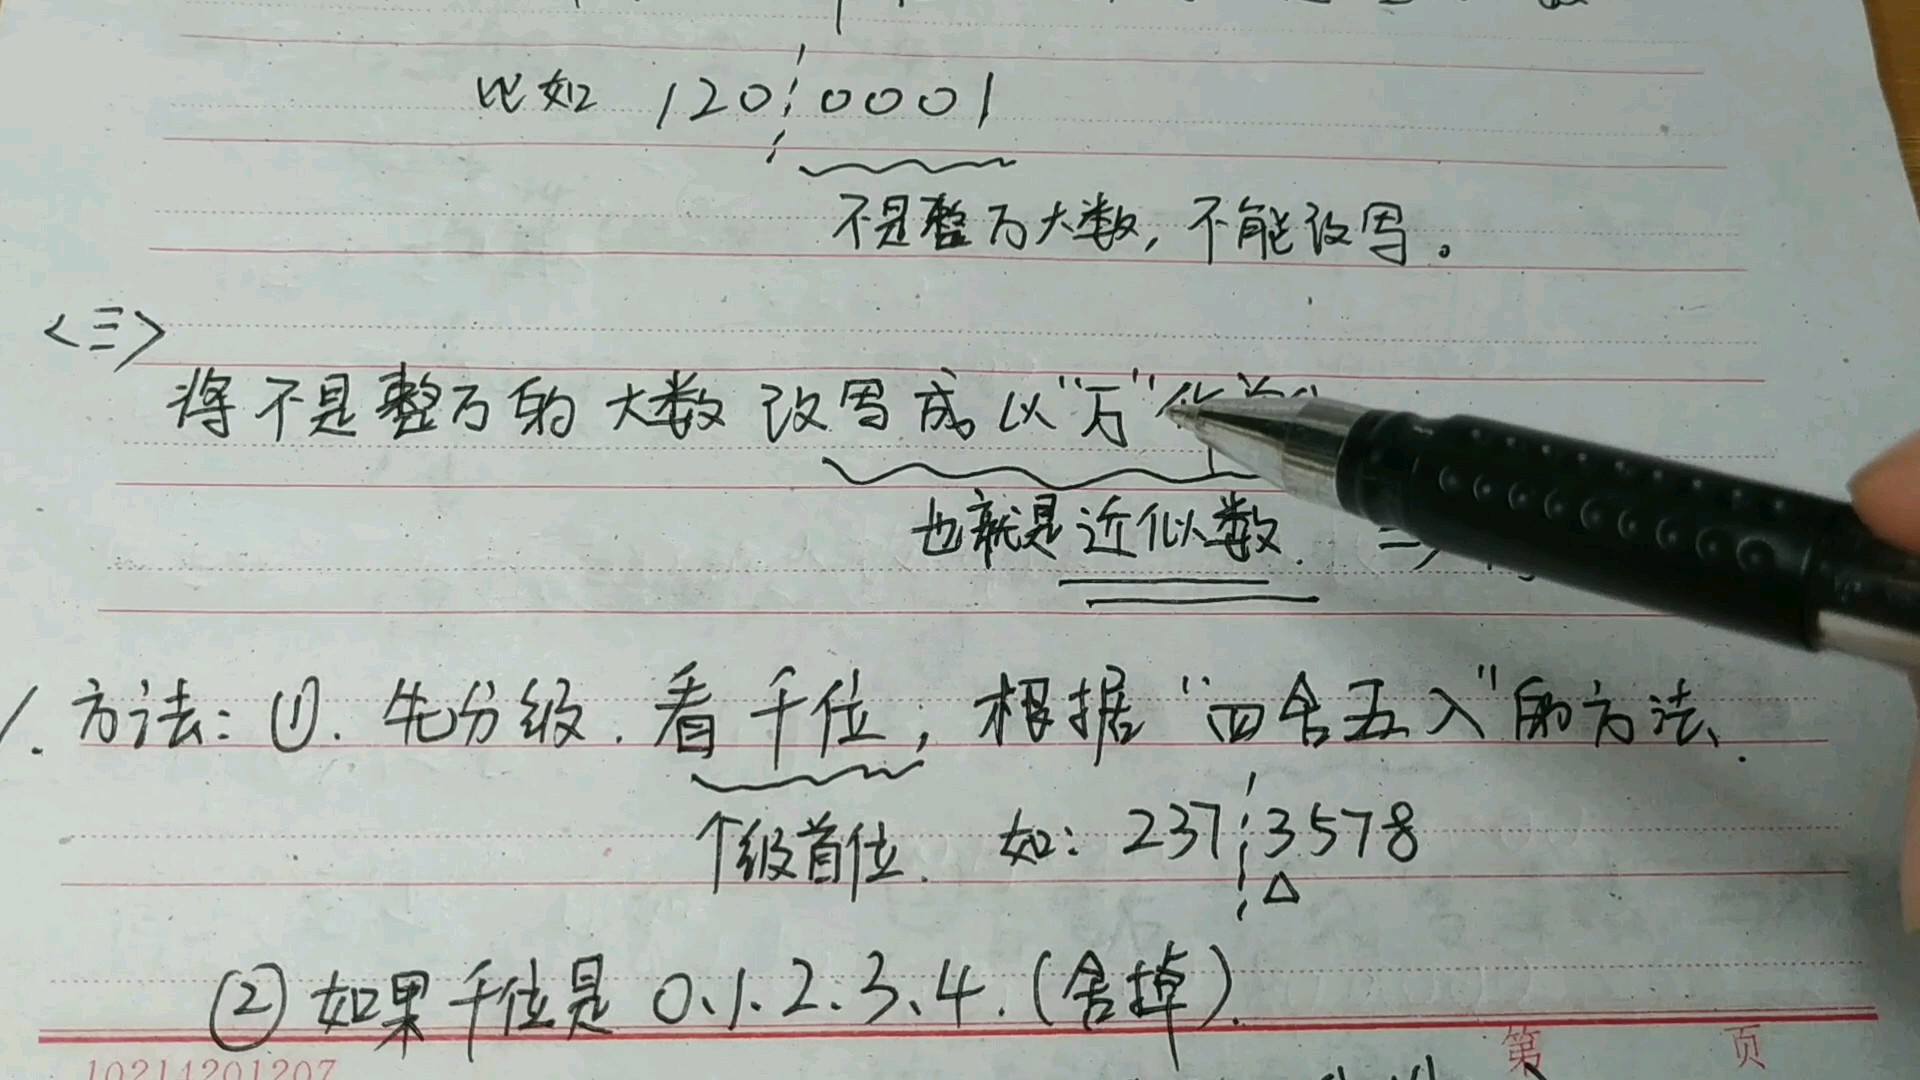 比如 120¦0001
不是整万大数,不能改写。
<三>
将不是整万的大数改写成以“万”作单
也就是近似数.
1.方法:①.先分级.看千位,根据“四舍五入”的方法.
个级首位. 如:237¦3578
△
②如果千位是0、1、2、3、4.(舍掉).
第 页
10214201207